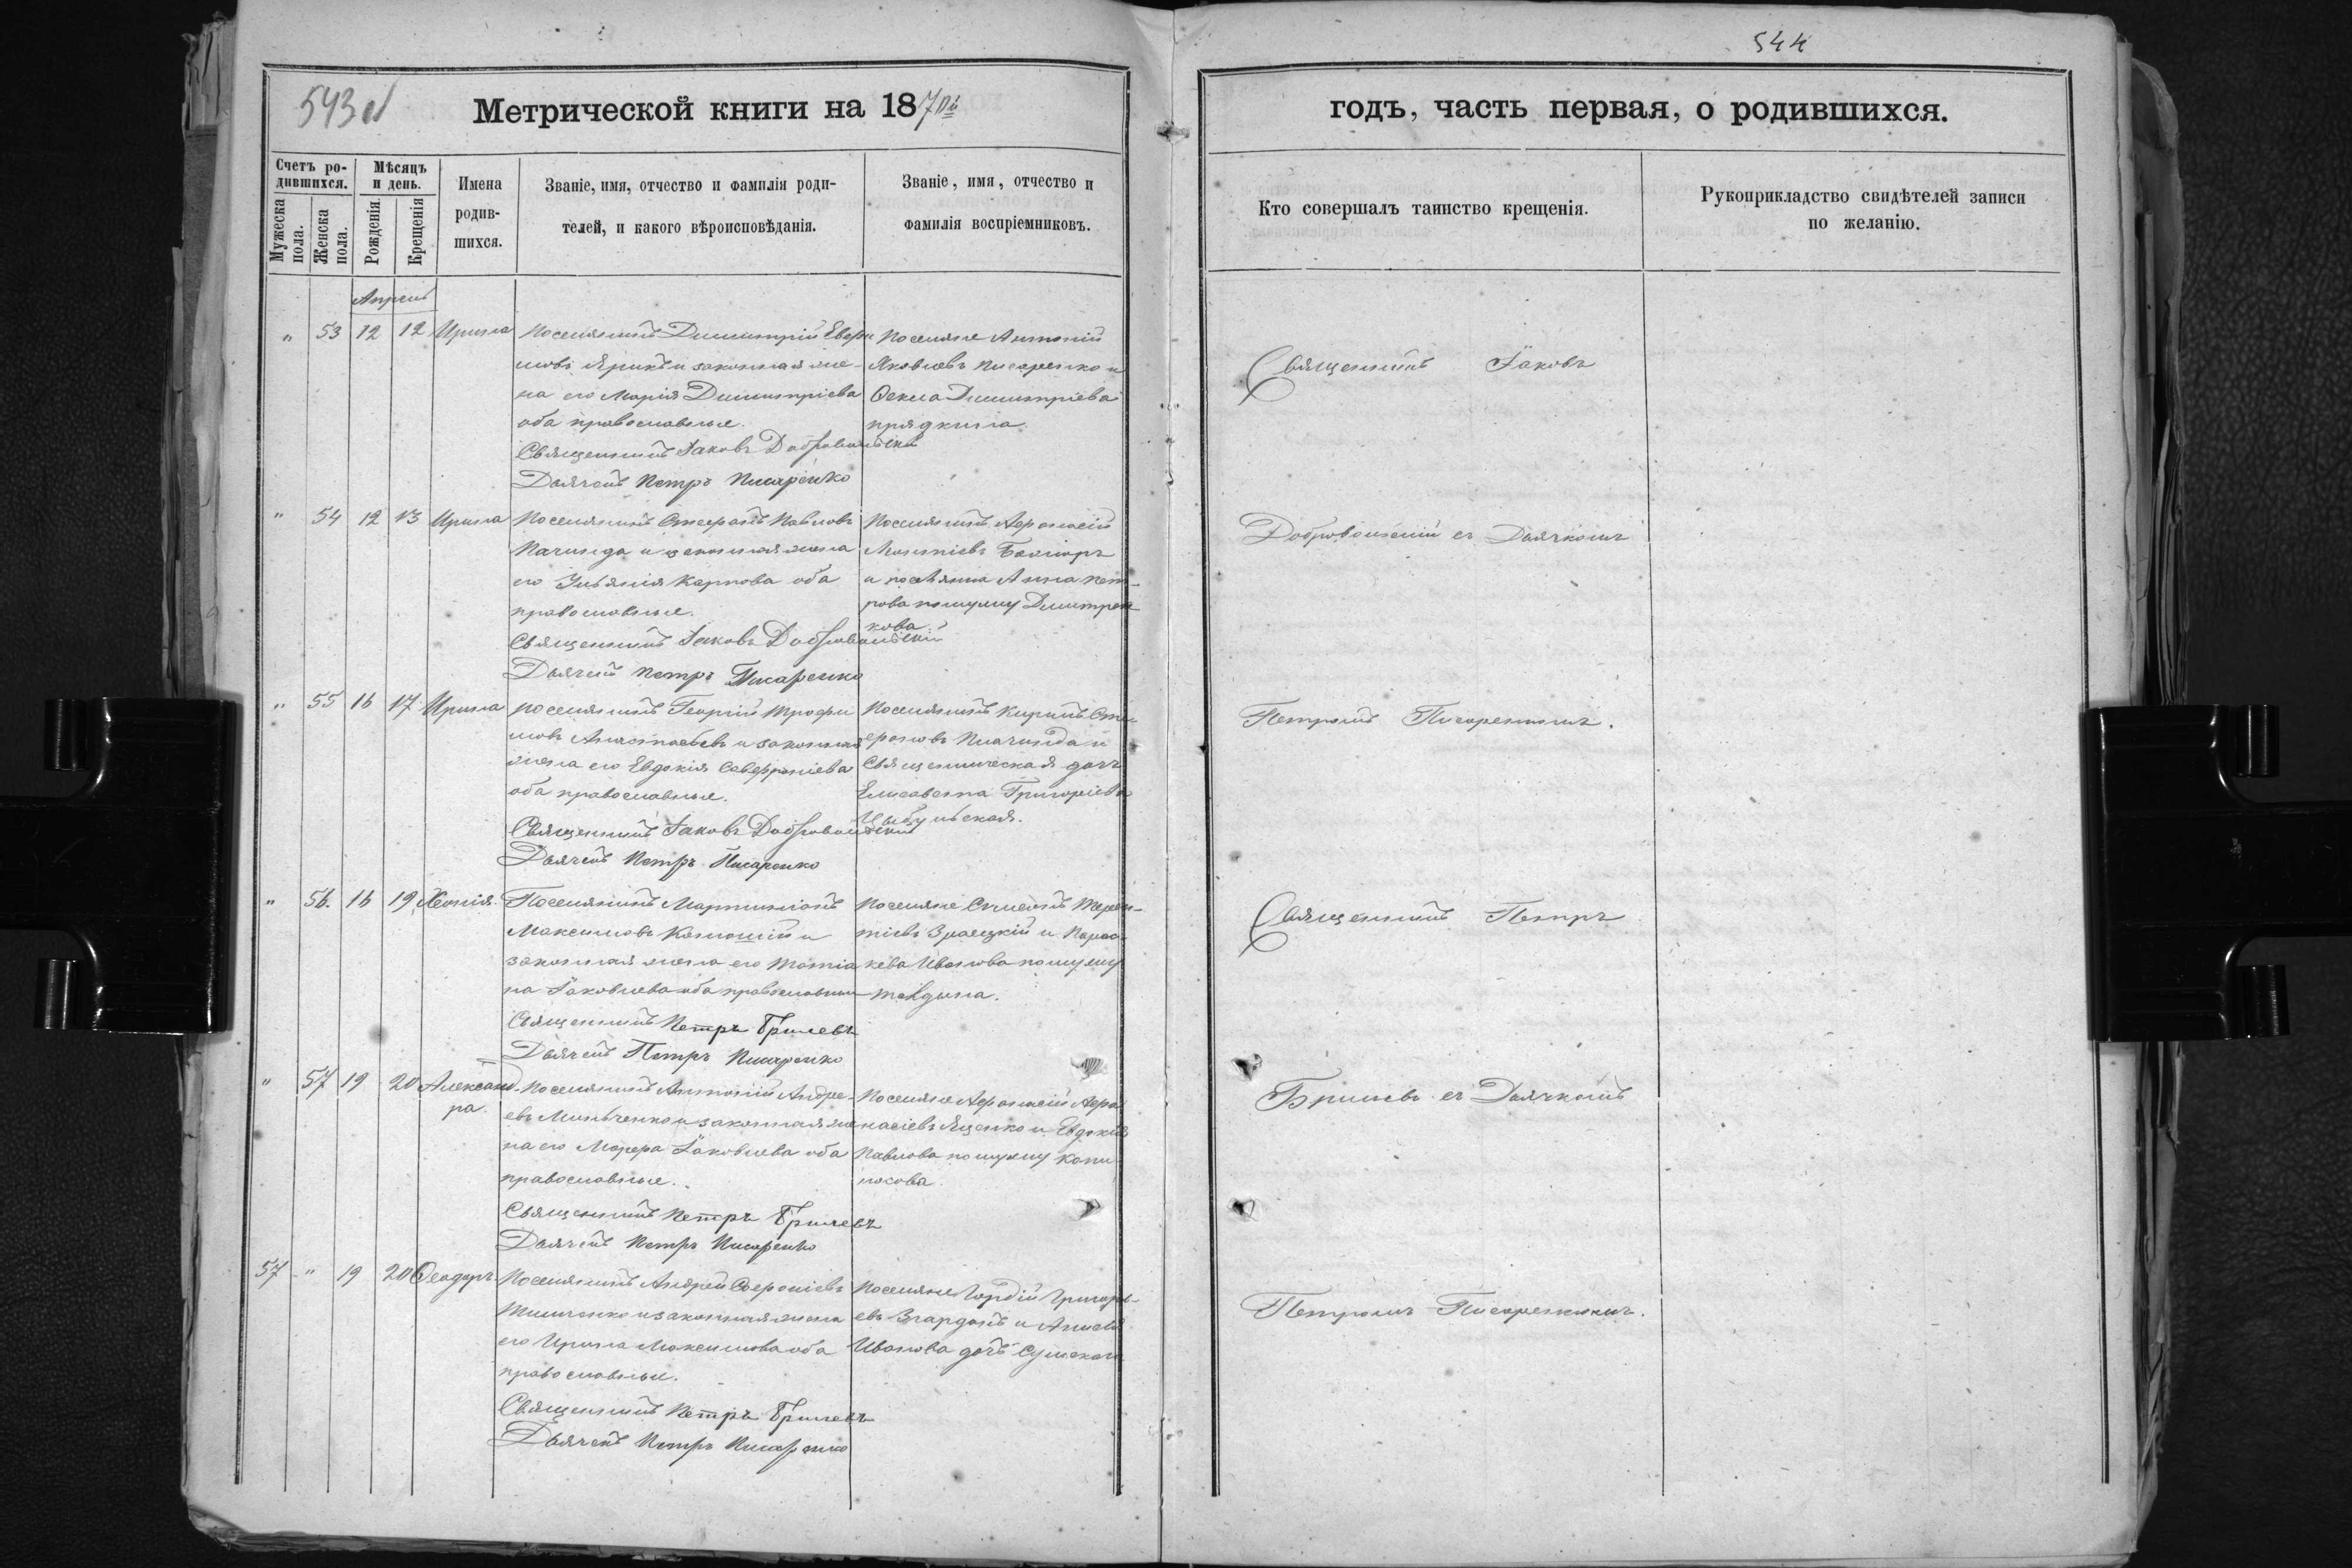 544
543 об
Метрической книги на 1870й
годъ, часть первая, о родившихся.
Счетъ родившихся.
Мѣсяцъ и день.
Мужеска пола.
Женска пола.
Рожденія.
Крещенія
Имена родившихся.
Званіе, имя, отчество и фамилія родителей, и какого вѣроисповѣданія.
Званіе, имя, отчество и фамилія воспріемниковъ.
Кто совершалъ таинство крещенія.
Рукоприкладство свидѣтелей записи по желанію.
Апрель
" 53 12 12 Ирина
Поселянинъ Димитрій Евфи
мовъ и законная же-
на его Марія Димитріева
оба православные.
Священникъ Іаковъ Добровольскій
Дьячекъ Петръ Писаренко
Поселяне Антоній
Яковлевъ Писаренко и
Фекла Димитріева
прядкина.
" 54 12 13 Ирина
Поселянинъ Стефанъ Павловъ
Пачинда и законная жена
его Ульянія Карпова оба
православные.
Священникъ Іаковъ Добровольскій
Дьячекъ Петръ Писаренко
Поселянинъ Афанасій
и поселянка Анна Пет-
рова по мужу Дмитрен
кова.
" 55 16 17 Ирина
Поселянинъ Георгій Трофи
мовъ Анастасьевъ и законная
жена его Евдокія
оба православные.
Священникъ Іаковъ Добровольскій
Дьячекъ Петръ Писаренко
Поселянинъ Кирилъ Сте-
фановъ и
Священническая дочь
Елисавета Григоріева
Цыбульская.
" 56. 16 19 Хеонія.
Поселянинъ Мартиніанъ
Максимовъ и
законная жена его Татіа
на Іаковлева оба православные
Священникъ Петръ Бришевъ
Дьячекъ Петръ Писаренко
Поселяне Терен-
тіевъ и Парас-
кева Иванова по мужу
" 57 19 20 Александ-
ра.
Поселянинъ Антоній Андре-
евъ Минченко и законная же
на его Марфа Іаковлева оба
православные.
Священникъ Петръ Бришевъ
Дьячекъ Петръ Писаренко
Поселяне Афанасій Афа
насіевъ Яценко и Евдокія
Павлова по мужу
57 " 19 20 Феодоръ
Поселянинъ Андрей Софроніевъ
Тимченко и законная жена
его Ирина Максимова оба
православные.
Священникъ Петръ Бришевъ
Дьячекъ Петръ Писаренко
Поселяне Гордій Григорь-
евъ и
Иванова дочь
Священникъ Іаковъ
Добровольскій съ Дьячкомъ
Петромъ Писаренкомъ.
Священникъ Петръ
Бришевъ съ Дьячкомъ
Петромъ Писаренкомъ.